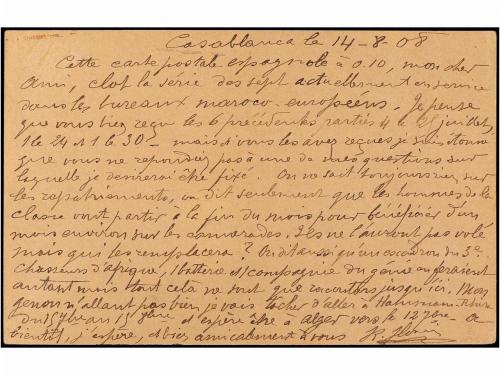 Casablanca le 14-8-08
Cette carte postale espagnole à 0.10, mon cher
Ami, clot la série des sept actuellement en service
dans les bureaux maroco-européens. Je pense
que vous avez reçu les 6 précédentes parties 4 le juillet,
1 le 24 et 1 le 30 - mais si vous les avez reçues je
que vous ne répondiez pas à une de mes questions sur
laquelle je désirerai être fixé. On ne sait toujours rien sur
les rapatriements, on dit seulement que les hommes de la
classe vont partir à la fin du mois pour bénéficier d'un
mois environ sur les camarades. Ils ne l'auront pas volé
mais qui les remplacera? On dit aussi qu'un escadron du 3e
chasseurs d'afrique, 1 batterie et 1 compagnie du génie en feraient
autant mais tout cela ne sont que racontars jusqu'ici. Mon
genou n'allant pas bien je vais tâcher d'aller à Hammam
du 1er au 15 7bre et espère être à alger vers le 12 7bre. a
bientôt, j'espère, et bien amicalement à vous